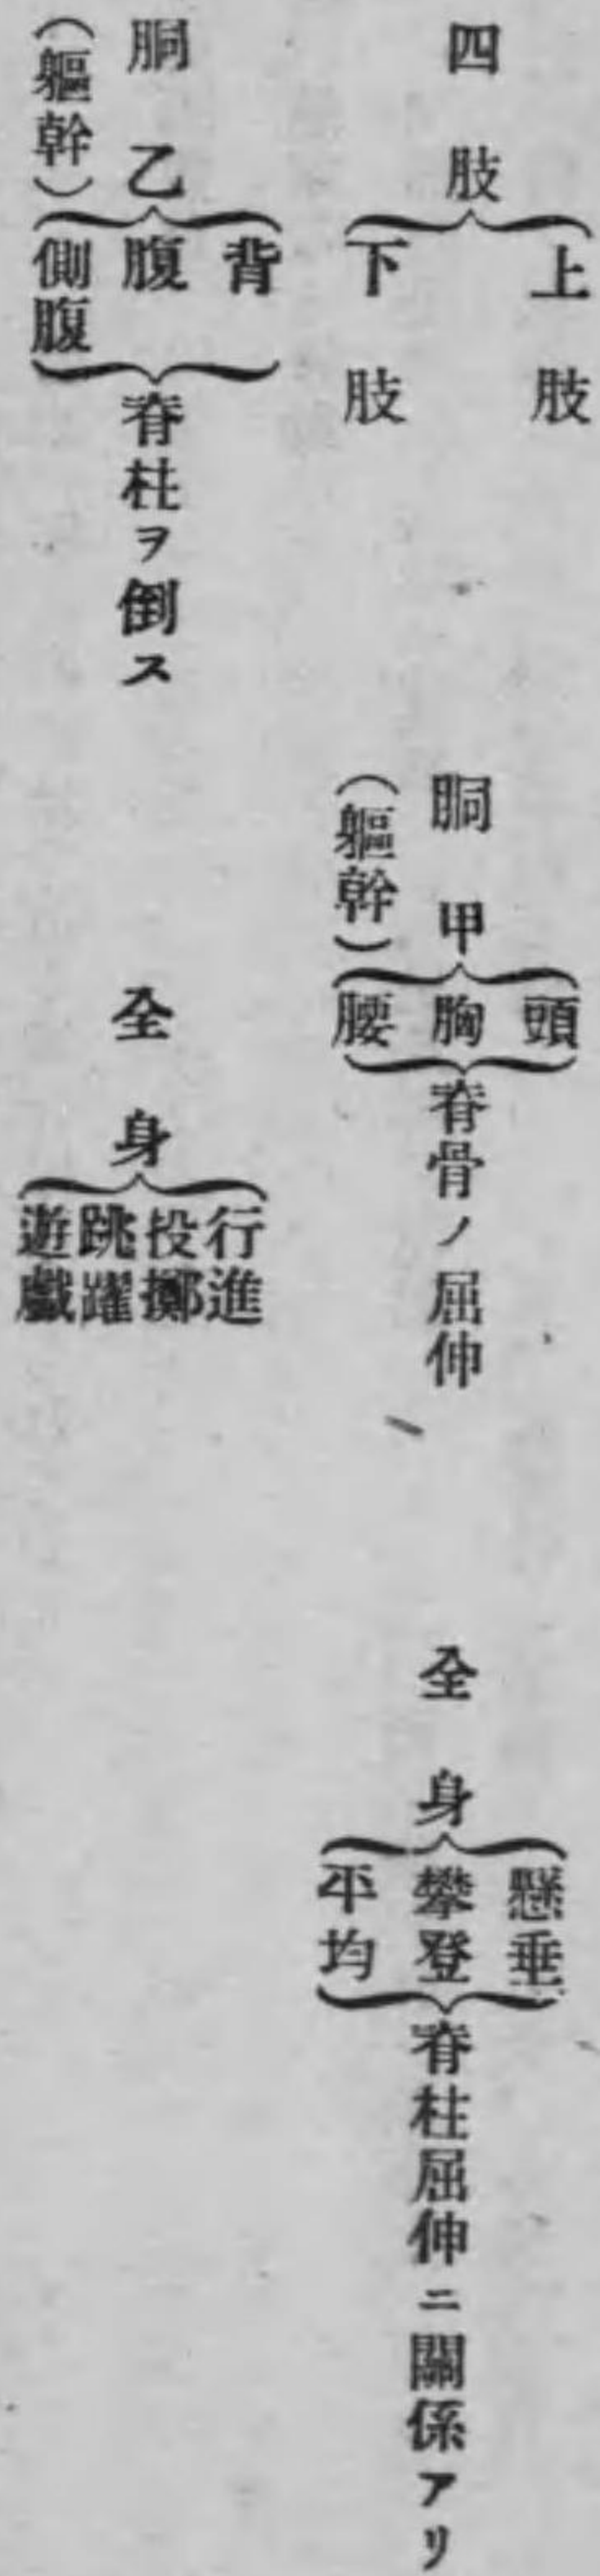 四肢
上肢
下肢
胴甲
(軀幹)
頭
胸
腰
脊骨ノ屈伸
全身
懸垂
攀登
平均
脊柱屈伸ニ關係アリ
胴乙
(軀幹)
背
腹
側腹
脊柱ヲ倒ス
全身
行進
投擲
跳躍
遊戲